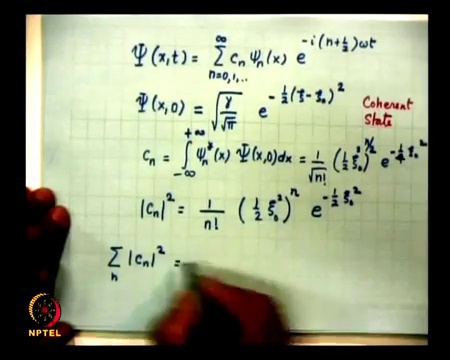 Ψ(x,t) = ∑_{n=0,1,..}^{∞} c_n ψ_n(x) e^{-i(n+½)ωt}
Ψ(x,0) = √(γ/√π) e^{-½(ξ-ξ₀)²} Coherent State
c_n = ∫_{-∞}^{+∞} ψ_n*(x) Ψ(x,0)dx = 1/√n! (½ ξ₀²)^{n/2} e^{-¼ξ₀²}
|c_n|² = 1/n! (½ ξ₀²)^n e^{-½ξ₀²}
∑_n |c_n|² =
NPTEL